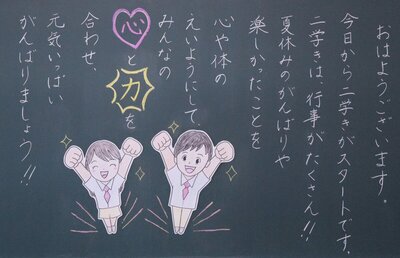 おはようございます。
今日から二学きがスタートです。
二学きは、行事がたくさん!!
夏休みのがんばりや
楽しかったことを
心や体の
えいようにして、
みんなの
心と力を
合わせ、
元気いっぱい
がんばりましょう!!